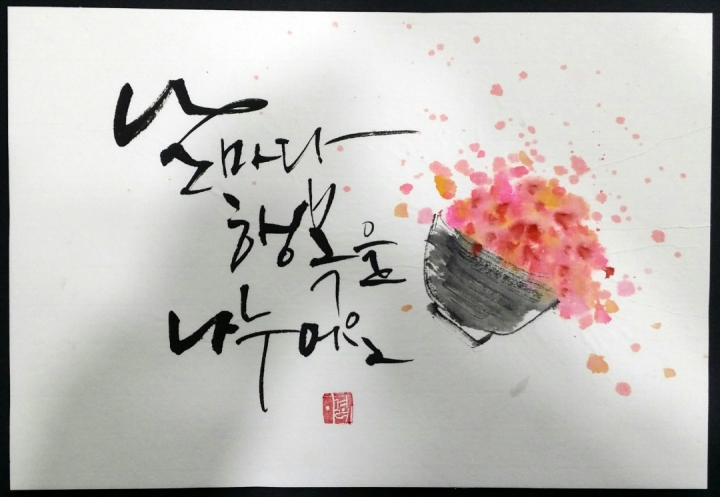 날마다
행복을
나누어요